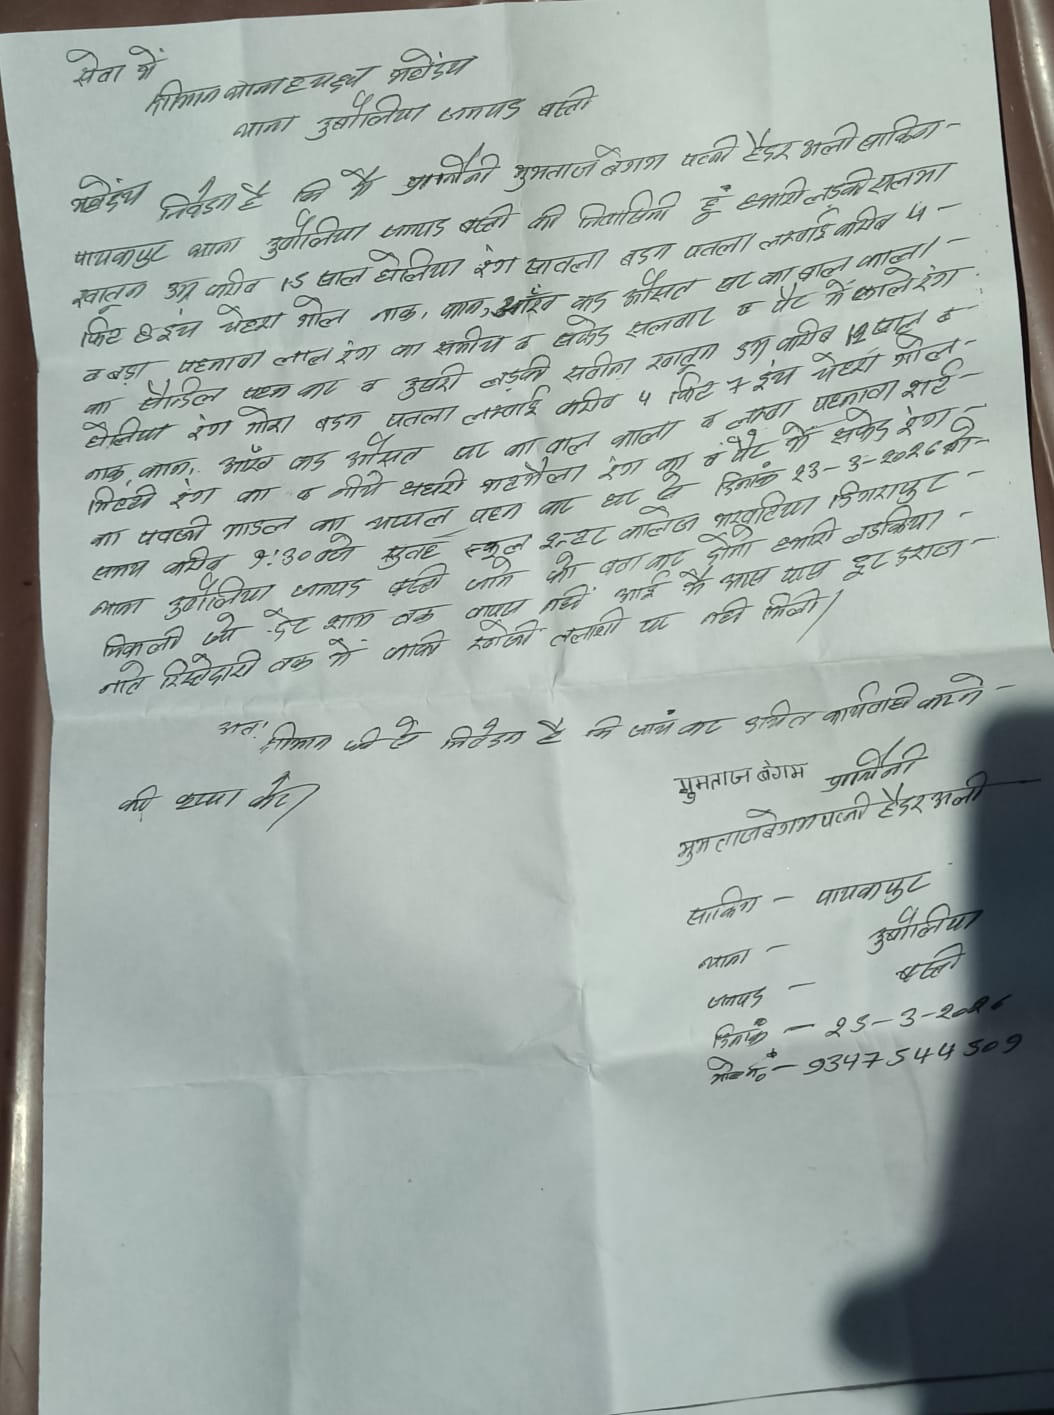 सेवा में
श्रीमान थानाध्यक्ष महोदय
थाना दुबौलिया जनपद बस्ती
महोदय निवेदन है कि मै प्रार्थिनी मुमताज बेगम पत्नी हैदर अली साकिन -
पायकपुर थाना दुबौलिया जनपद बस्ती की निवासिनी हूं हमारी लड़की सलमा
खातून उम्र करीब 15 साल हुलिया रंग सावला बदन पतला लम्बाई करीब 5 -
फिट 8 इंच चेहरा गोल नाक, कान, आँख कद औसत सर का बाल काला -
व बड़ा पहनावा लाल रंग का समीज व सफेद सलवार व पैर में काले रंग
का सैन्डिल पहन कर व दुसरी लड़की खातून उम्र करीब 12 साल व
हुलिया रंग गोरा बदन पतला लम्बाई करीब 4 फिट 7 इंच चेहरा गोल -
नाक, कान, आँख कद औसत सर का बाल काला व लम्बा पहनावा शर्ट -
रंग का व नीचे घघरी मटमैला रंग का व पैर में सफेद रंग -
का चप्पल पहन कर घर से दिनांक 23-3-2026 को -
समय करीब 9:30 बजे सुबह स्कूल इन्टर कालेज -
थाना दुबौलिया जनपद बस्ती जाने को बता कर दोनो हमारी लडकिया -
निकाली जो देर शाम तक वापस नही आई मै आस पास दूर दराज -
नाते रिश्तेदारी तक में काफी तलाशी पर नही मिली।
अतः श्रीमान जी से निवेदन है कि जांच कर उचित कार्यवाही करने -
की कृपा करें।
मुमताज बेगम प्रार्थिनी
मुमताज बेगम पत्नी हैदर अली
साकिन - पायकपुर
थाना - दुबौलिया
जनपद - बस्ती
दिनांक - 25-3-2026
मो० नं० - 9347544509